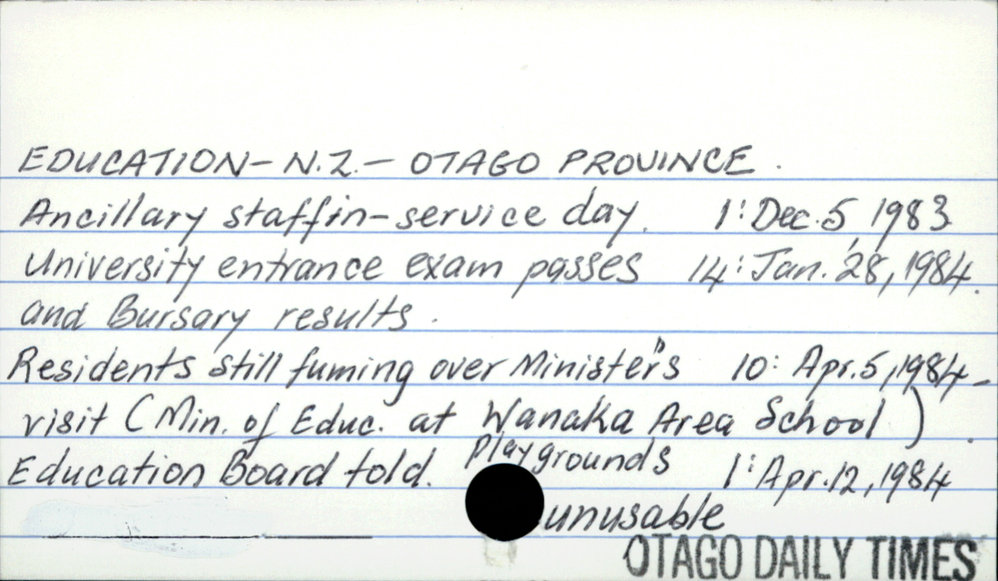 EDUCATION - N.Z. - OTAGO PROVINCE.
Ancillary staff in-service day. 1: Dec. 5, 1983
University entrance exam passes 14: Jan. 28, 1984.
and Bursary results.
Residents still fuming over Minister's 10: Apr. 5, 1984
visit (Min. of Educ. at Wanaka Area School).
Education Board told. Playgrounds 1: Apr. 12, 1984
unusable
OTAGO DAILY TIMES